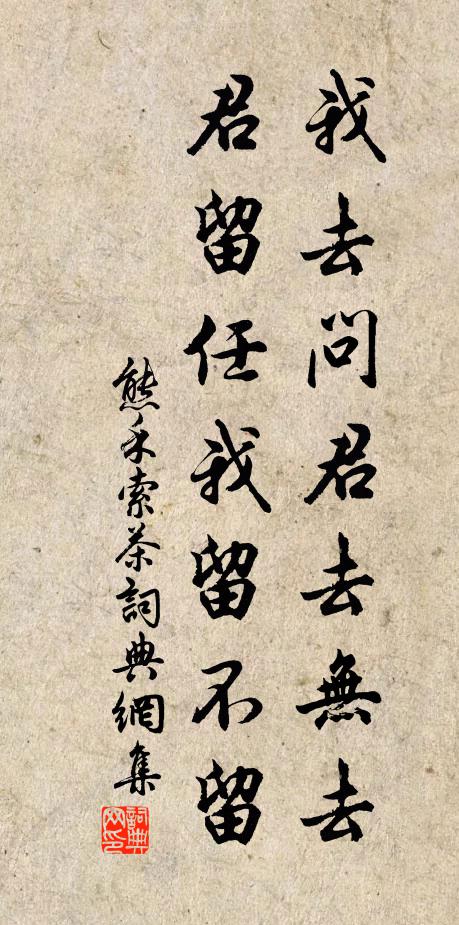 我去問君去無去
君留任我留不留
熊禾索茶詞典網集
詞典網印